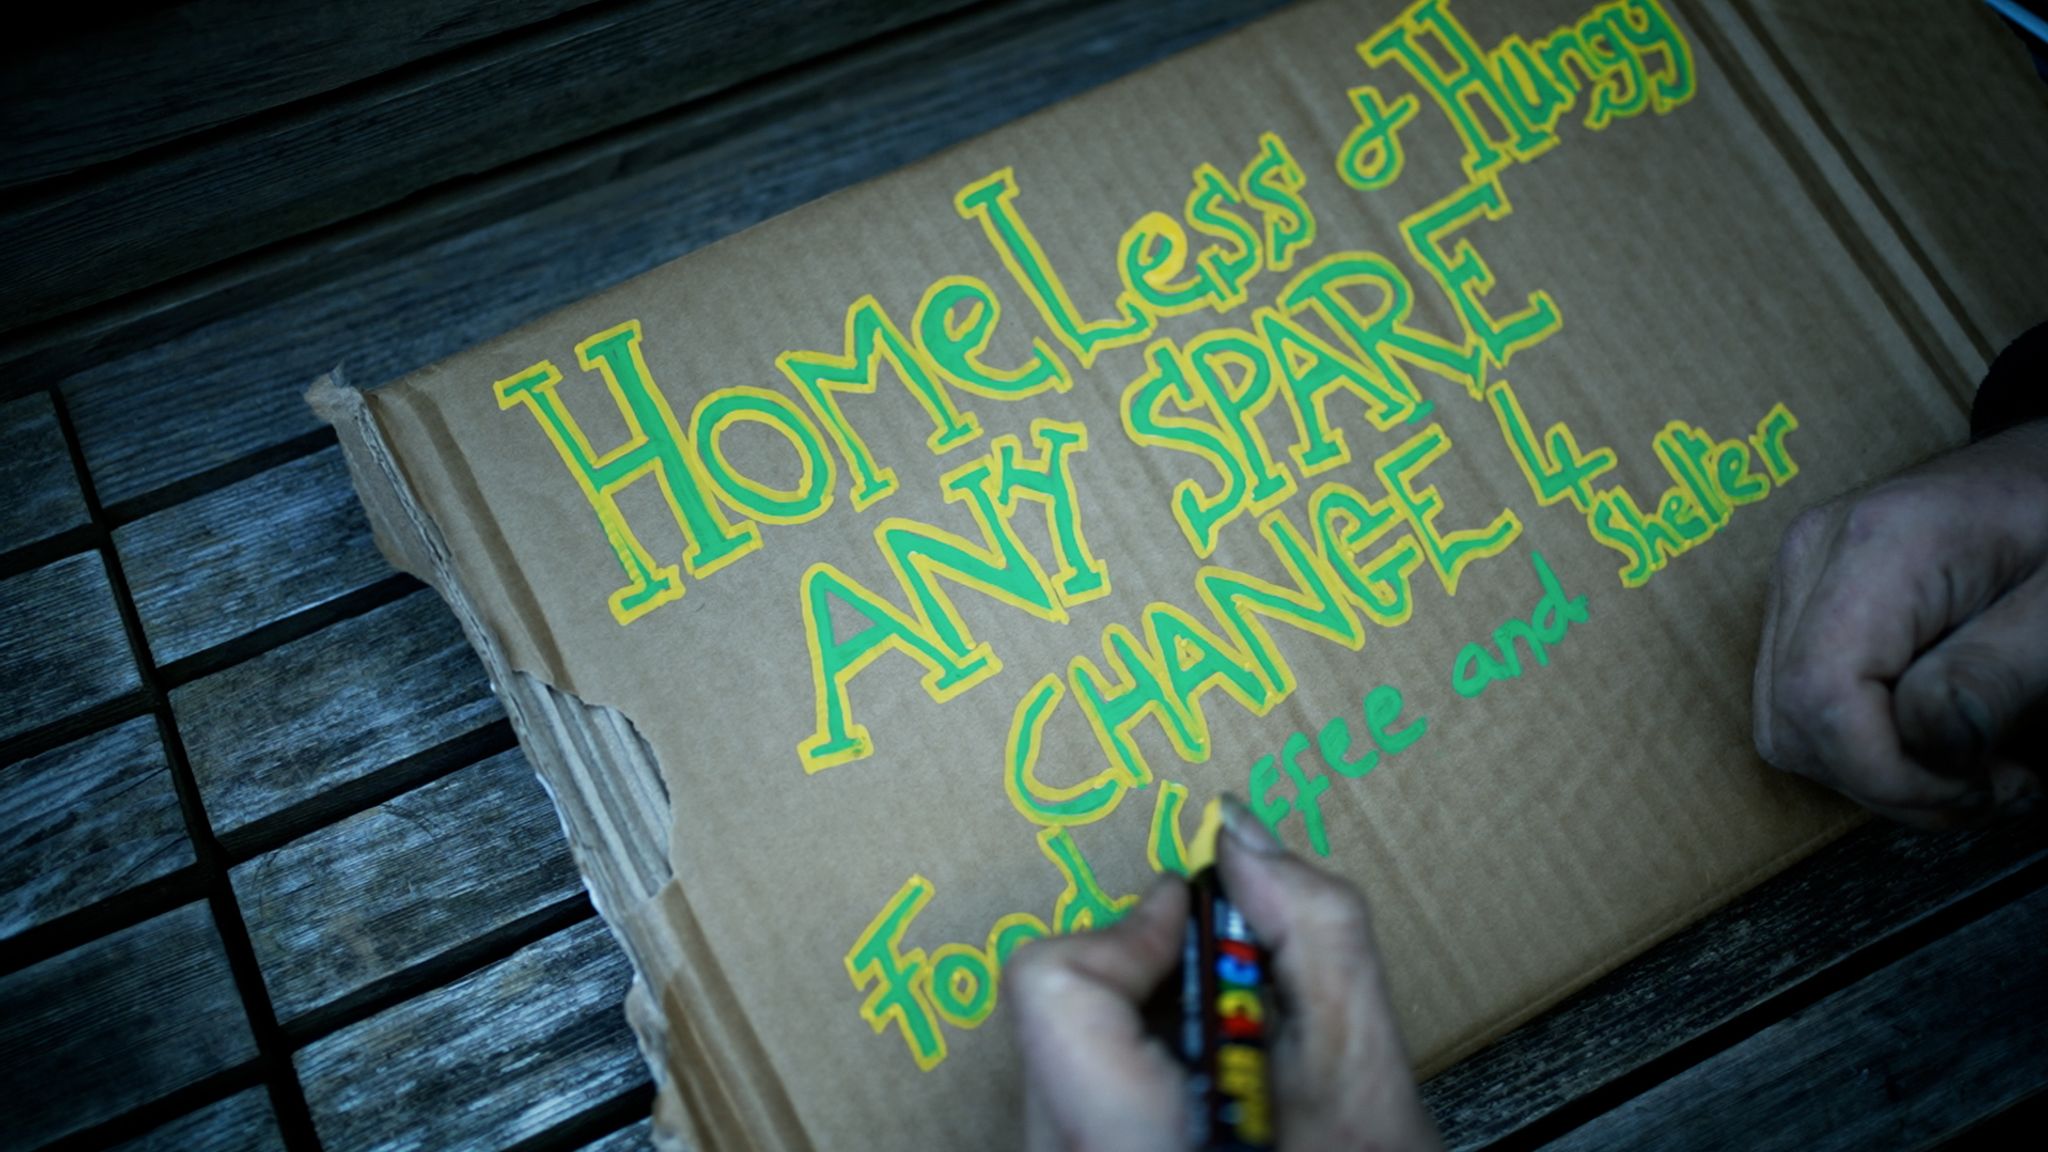 HomeLess & Hungy
ANY SPARE
CHANGE 4
Food Coffee and Shelter